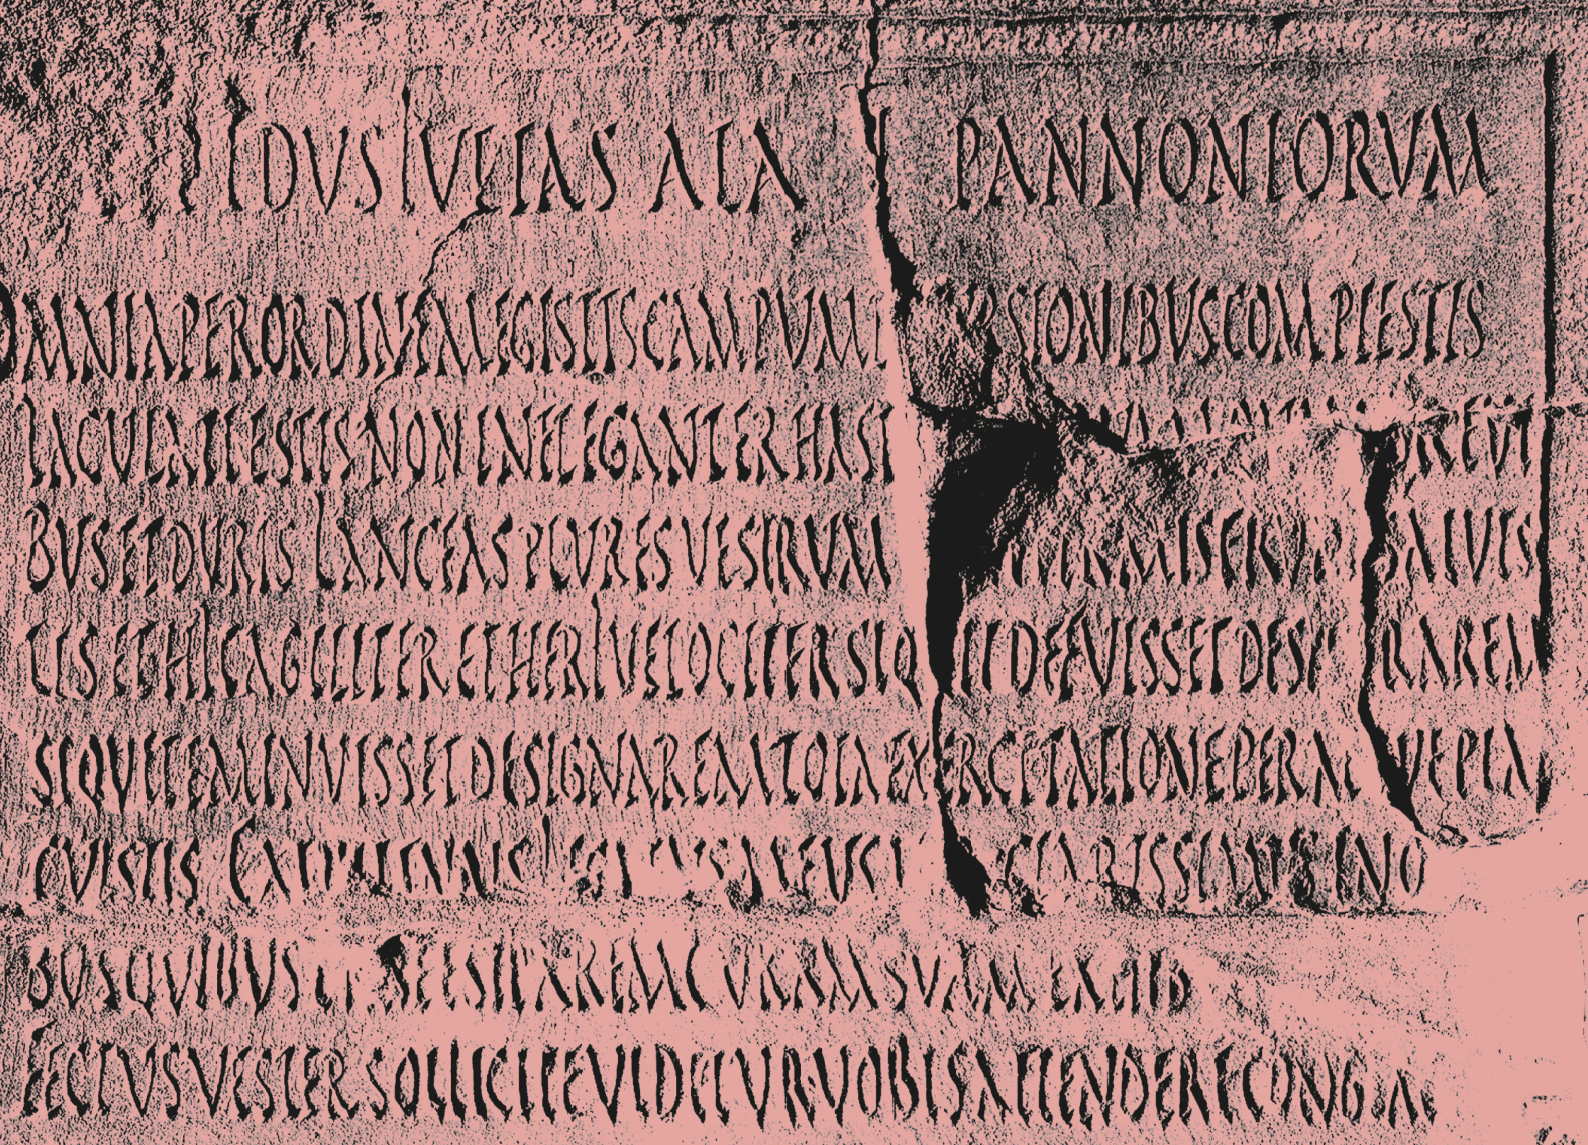 IDVS IVLIAS ALA I PANNONIORVM
OMNIA PER ORDINEM EGISTIS CAMPVM DISCVRSIONIBVS COMPLESTIS
IACVLATI ESTIS NON INELEGANTER HASTIS
BVS ET DVRIS LANCEAS PLVRES VESTRVM MISERVNT SALVIS
TIS ET HIC AGILITER ET HERI VELOCITER SI QVIT DEFVISSET DESIDERAREM
SI QVIT EMINVISSET DESIGNAREM TOTA EXERCITATIONE PERAEQVE PLA
CVISTIS CATVLLINVS LEGATVS MEVS CLARISSIMVS INO
BVS QVIBVS PRAEEST PAREM CVRAM SVAM EXHIB
FECTVS VESTER SOLLICITE VIDETVR VOBIS ATTENDERE CONGIA